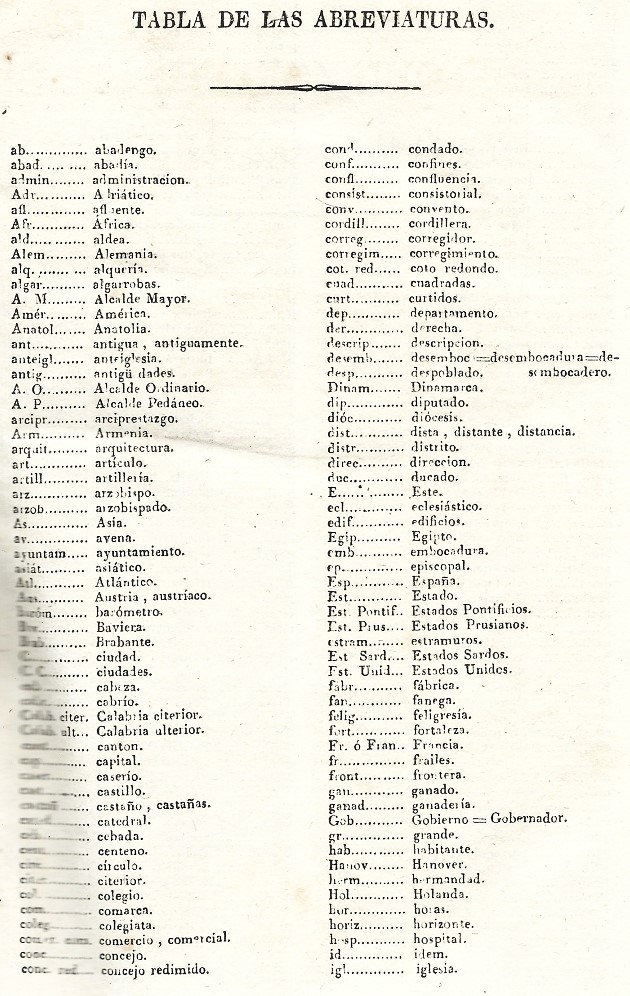 TABLA DE LAS ABREVIATURAS.
ab.............. abadengo.
abad. .... .... abadía.
admin........ administracion.
Adr........... Adriático.
afl............. afluente.
Afr........... África.
ald..... ...... aldea.
Alem........ Alemania.
alq. ....... ... alquería.
algar......... algarrobas.
A. M......... Alcalde Mayor.
Amér........ América.
Anatol...... Anatolia.
ant........... antigua , antiguamente.
anteigl....... anteiglesia.
antig......... antigüedades.
A. O......... Alcalde Ordinario.
A. P......... Alcalde Pedáneo.
arcipr........ arciprestazgo.
Arm.......... Armenia.
arquit........ arquitectura.
art............ artículo.
artill......... artillería.
arz............ arzobispo.
arzob........ arzobispado.
As............. Asia.
av............. avena.
ayuntam..... ayuntamiento.
asiát.......... asiático.
Atl............ Atlántico.
Austria , austríaco.
baróm........ barómetro.
Baviera.
Brab......... Brabante.
ciudad.
ciudades.
cabeza.
cabrío.
citer. Calabria citerior.
ult... Calabria ulterior.
canton.
capital.
caserío.
castillo.
castaño , castañas.
catedral.
cebada.
centeno.
círculo.
citerior.
colegio.
comarca.
colegiata.
comercio , comercial.
conc ........ concejo.
conc. red.... concejo redimido.
cond.......... condado.
conf........... confines.
confl.......... confluencia.
consist....... consistorial.
conv.......... convento.
cordill....... cordillera.
correg........ corregidor.
corregim..... corregimiento.
cot. red...... coto redondo.
cuad.......... cuadradas.
curt........... curtidos.
dep............ departamento.
der............ derecha.
descrip....... descripcion.
desemb...... desemboc =desembocadura=de-
sembocadero.
desp.......... despoblado.
Dinam....... Dinamarca.
dip............ diputado.
dióc........... diócesis.
dist............ dista , distante , distancia.
distr........... distrito.
direc.......... direccion.
duc............ ducado.
E............... Este.
ecl............. eclesiástico.
edif............ edificios.
Egip.......... Egipto.
emb........... embocadura.
ep.............. episcopal.
Esp............ España.
Est............ Estado.
Est. Pontif.. Estados Pontificios.
Est. Prus.... Estados Prusianos.
estram........ estramuros.
Est Sard.... Estados Sardos.
Est. Unid... Estados Unidos.
fábr........... fábrica.
fan............. fanega.
felig........... feligresía.
fort............ fortaleza.
Fr. ó Fran.. Francia.
fr............... frailes.
front.......... frontera.
gan............ ganado.
ganad........ ganadería.
Gob........... Gobierno = Gobernador.
gr.............. grande.
hab............ habitante.
Hanov....... Hanover.
herm......... hermandad.
Hol........... Holanda.
hor............ horas.
horiz.......... horizonte.
hosp........... hospital.
id.............. idem.
igl............. iglesia.